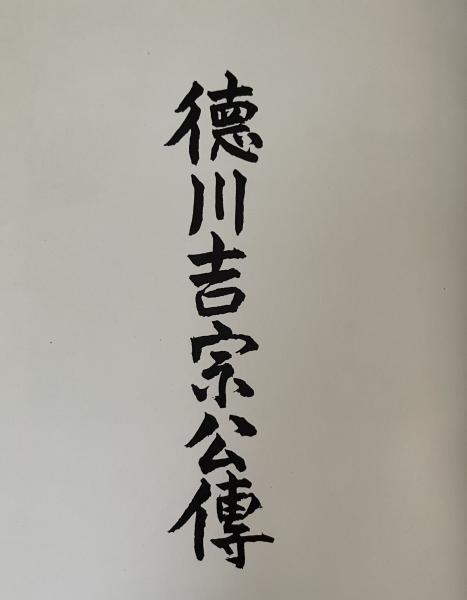 德川吉宗公傳